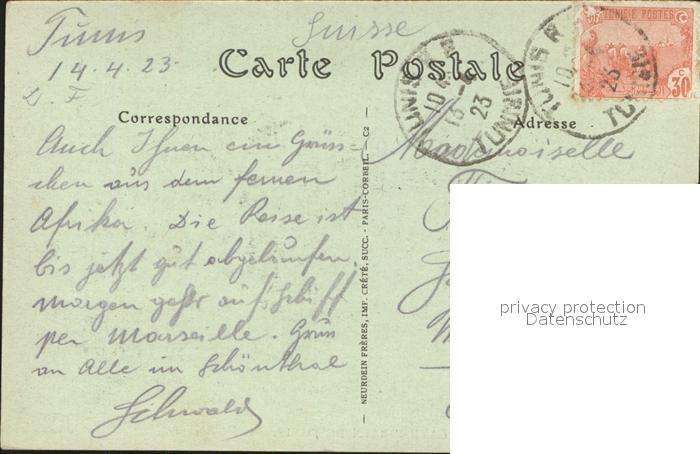 Tunis
14.4.23
L. F.
Suisse
Carte Postale
TUNIS R
10
13 - 4
23
TUNISIE
TUNIS R
10
23
TUNISIE
TUNISIE POSTES
30
C
Correspondance
Adresse
Auch Ihnen ein Grüss-
chen aus dem fernen
Afrika. Die Reise ist
bis jetzt gut abgelaufen.
Morgen gehts auf's Schiff
per Marseille. Grüss
an Alle im Schönthal
NEURDEIN FRÈRES, IMP. CRÉTÉ, SUCC. - PARIS-CORBEIL. - C2
Mademoiselle
privacy protection
Datenschutz